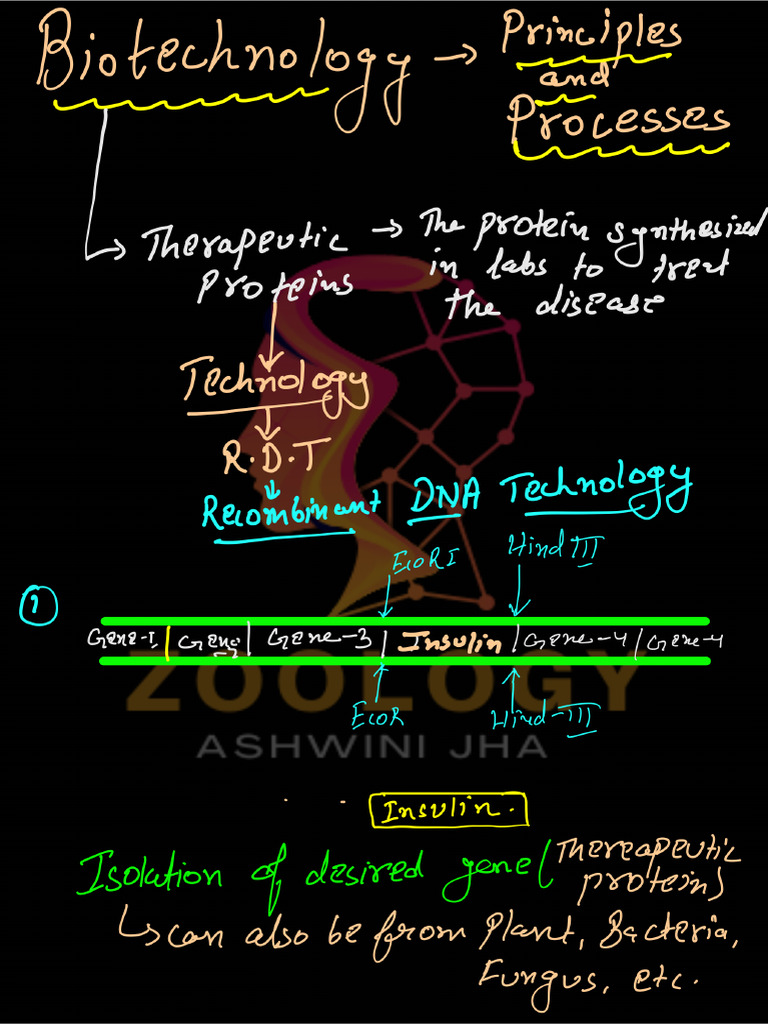 Biotechnology → Principles
and
Processes
Therapeutic → The protein synthesized
proteins in labs to treat
the disease
Technology
R.D.T
Recombinant DNA Technology
EcoRI Hind III
1
Gene-I Gene-2 Gene-3 Insulin Gene-4 Gene-4
EcoR Hind-III
ZOOLOGY
ASHWINI JHA
Insulin.
Isolation of desired gene (Thereapeutic
proteins)
can also be from Plant, Bacteria,
Fungus, etc.